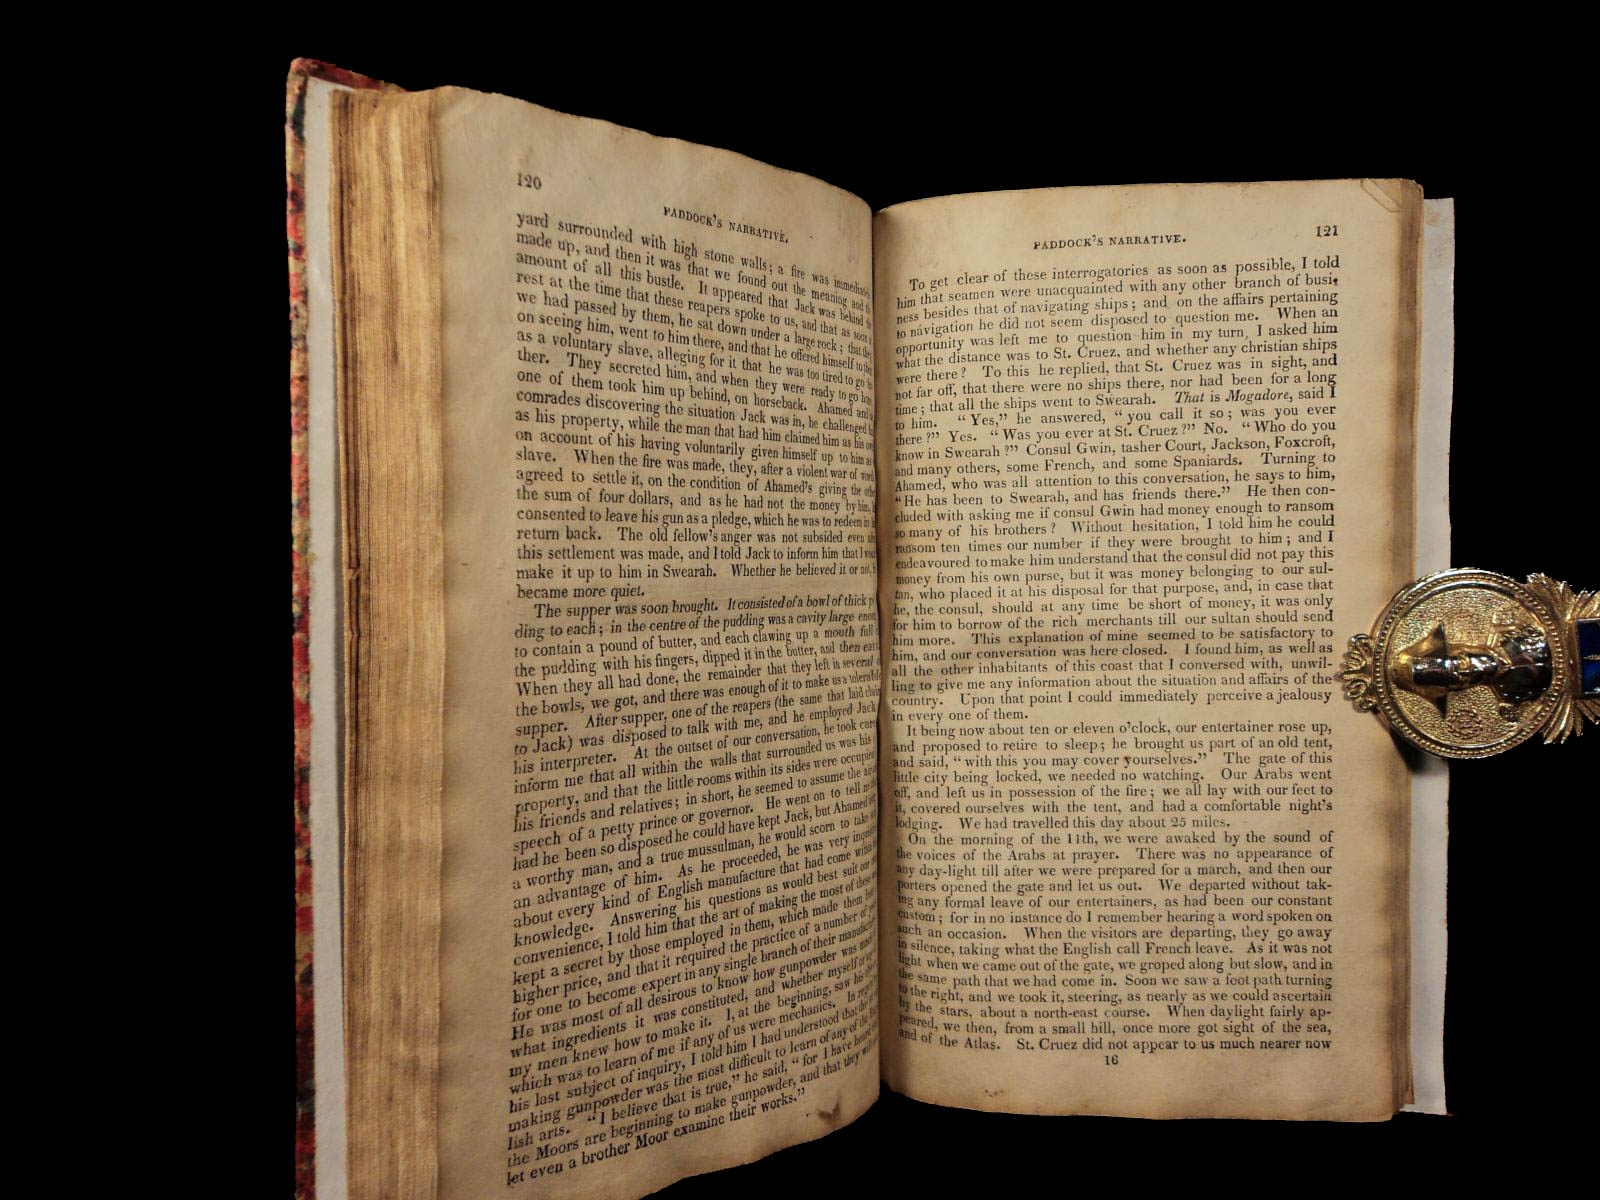 120
PADDOCK'S NARRATIVE.
yard surrounded with high stone walls; a fire was immediately
made up, and then it was that we found out the meaning and
amount of all this bustle. It appeared that Jack was behind
rest at the time that these reapers spoke to us, and that as soon
we had passed by them, he sat down under a large rock; that
on seeing him, went to him there, and that he offered himself to
as a voluntary slave, alleging for it that he was too tired to go
ther. They secreted him, and when they were ready to go home
one of them took him up behind, on horseback. Ahamed and
comrades discovering the situation Jack was in, he challenged
as his property, while the man that had him claimed him as his
on account of his having voluntarily given himself up to him as
slave. When the fire was made, they, after a violent war of words
agreed to settle it, on the condition of Ahamed's giving the
the sum of four dollars, and as he had not the money by him,
consented to leave his gun as a pledge, which he was to redeem in
return back. The old fellow's anger was not subsided even
this settlement was made, and I told Jack to inform him that I
make it up to him in Swearah. Whether he believed it or not,
became more quiet.
The supper was soon brought. It consisted of a bowl of thick
ding to each; in the centre of the pudding was a cavity large
to contain a pound of butter, and each clawing up a mouth full
the pudding with his fingers, dipped it in the butter, and then eat
When they all had done, the remainder that they left in several
the bowls, we got, and there was enough of it to make us a tolerable
supper. After supper, one of the reapers (the same that laid claim
to Jack) was disposed to talk with me, and he employed Jack
his interpreter. At the outset of our conversation, he took care
inform me that all within the walls that surrounded us was his
property, and that the little rooms within its sides were occupied
his friends and relatives; in short, he seemed to assume the air
speech of a petty prince or governor. He went on to tell
had he been so disposed he could have kept Jack, but Ahamed
a worthy man, and a true mussulman, he would scorn to take
an advantage of him. As he proceeded, he was very
about every kind of English manufacture that had come within
knowledge. Answering his questions as would best suit our
convenience, I told him that the art of making the most of these
kept a secret by those employed in them, which made them
higher price, and that it required the practice of a number of
for one to become expert in any single branch of their
He was most of all desirous to know how gunpowder was
what ingredients it was constituted, and whether myself or
my men knew how to make it. I, at the beginning, saw his
which was to learn of me if any of us were mechanics. In
his last subject of inquiry, I told him I had understood that the
making gunpowder was the most difficult to learn of any of the
lish arts. "I believe that is true," he said, "for I have heard
the Moors are beginning to make gunpowder, and that they
let even a brother Moor examine their works."
PADDOCK'S NARRATIVE.
121
To get clear of these interrogatories as soon as possible, I told
him that seamen were unacquainted with any other branch of busi-
ness besides that of navigating ships; and on the affairs pertaining
to navigation he did not seem disposed to question me. When an
opportunity was left me to question him in my turn, I asked him
what the distance was to St. Cruez, and whether any christian ships
were there? To this he replied, that St. Cruez was in sight, and
not far off, that there were no ships there, nor had been for a long
time; that all the ships went to Swearah. That is Mogadore, said I
to him. "Yes," he answered, "you call it so; was you ever
there?" Yes. "Was you ever at St. Cruez?" No. "Who do you
know in Swearah?" Consul Gwin, tasher Court, Jackson, Foxcroft,
and many others, some French, and some Spaniards. Turning to
Ahamed, who was all attention to this conversation, he says to him,
"He has been to Swearah, and has friends there." He then con-
cluded with asking me if consul Gwin had money enough to ransom
so many of his brothers? Without hesitation, I told him he could
ransom ten times our number if they were brought to him; and I
endeavoured to make him understand that the consul did not pay this
money from his own purse, but it was money belonging to our sul-
tan, who placed it at his disposal for that purpose, and, in case that
he, the consul, should at any time be short of money, it was only
for him to borrow of the rich merchants till our sultan should send
him more. This explanation of mine seemed to be satisfactory to
him, and our conversation was here closed. I found him, as well as
all the other inhabitants of this coast that I conversed with, unwil-
ling to give me any information about the situation and affairs of the
country. Upon that point I could immediately perceive a jealousy
in every one of them.
It being now about ten or eleven o'clock, our entertainer rose up,
and proposed to retire to sleep; he brought us part of an old tent,
and said, "with this you may cover yourselves." The gate of this
little city being locked, we needed no watching. Our Arabs went
off, and left us in possession of the fire; we all lay with our feet to
it, covered ourselves with the tent, and had a comfortable night's
lodging. We had travelled this day about 25 miles.
On the morning of the 11th, we were awaked by the sound of
the voices of the Arabs at prayer. There was no appearance of
any day-light till after we were prepared for a march, and then our
porters opened the gate and let us out. We departed without tak-
ing any formal leave of our entertainers, as had been our constant
custom; for in no instance do I remember hearing a word spoken on
such an occasion. When the visitors are departing, they go away
in silence, taking what the English call French leave. As it was not
light when we came out of the gate, we groped along but slow, and in
the same path that we had come in. Soon we saw a foot path turning
to the right, and we took it, steering, as nearly as we could ascertain
by the stars, about a north-east course. When daylight fairly ap-
peared, we then, from a small hill, once more got sight of the sea,
and of the Atlas. St. Cruez did not appear to us much nearer now
16